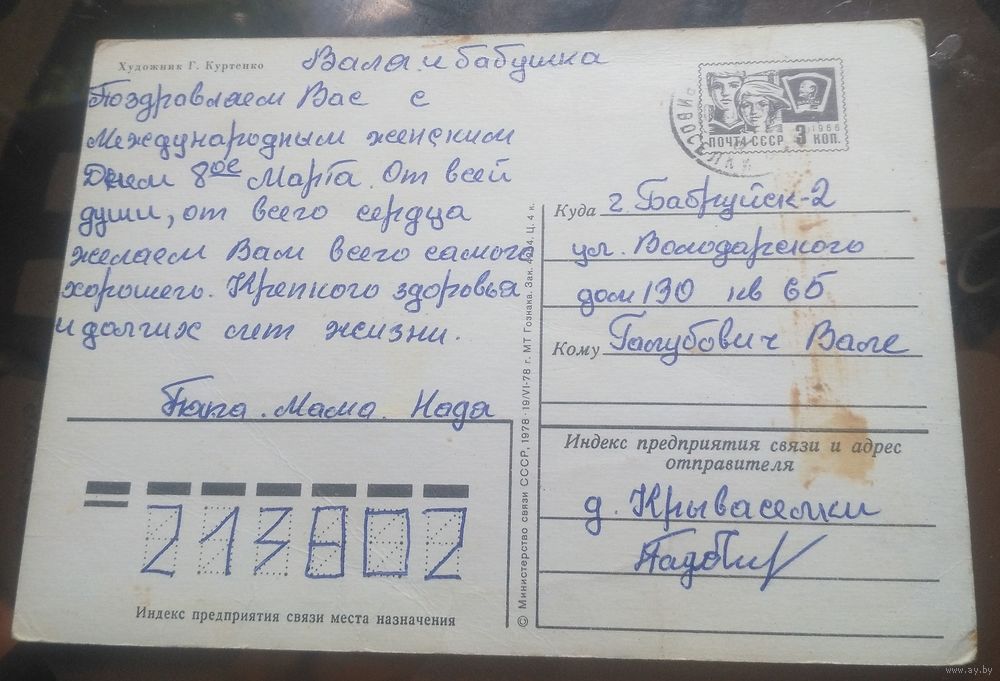 Художник Г. Куртенко
Вала и бабушка
Поздравляем Вас с
Международным женским
Днем 8ое Марта. От всей
души, от всего сердца
желаем Вам всего самого
хорошего. Крепкого здоровья
и долгих лет жизни.
Папа. Мама. Надя
ПОЧТА СССР 3 КОП.
1966
Куда г. Бабруйск-2
ул. Володарского
дом 130 кв 65
Кому Галубович Вале
Индекс предприятия связи и адрес
отправителя
д. Крываселки
213802
Индекс предприятия связи места назначения
© Министерство связи СССР, 1978 · 19/VI-78 г. МТ Гознака. Зак. Ц. 4 к.
www.ay.by